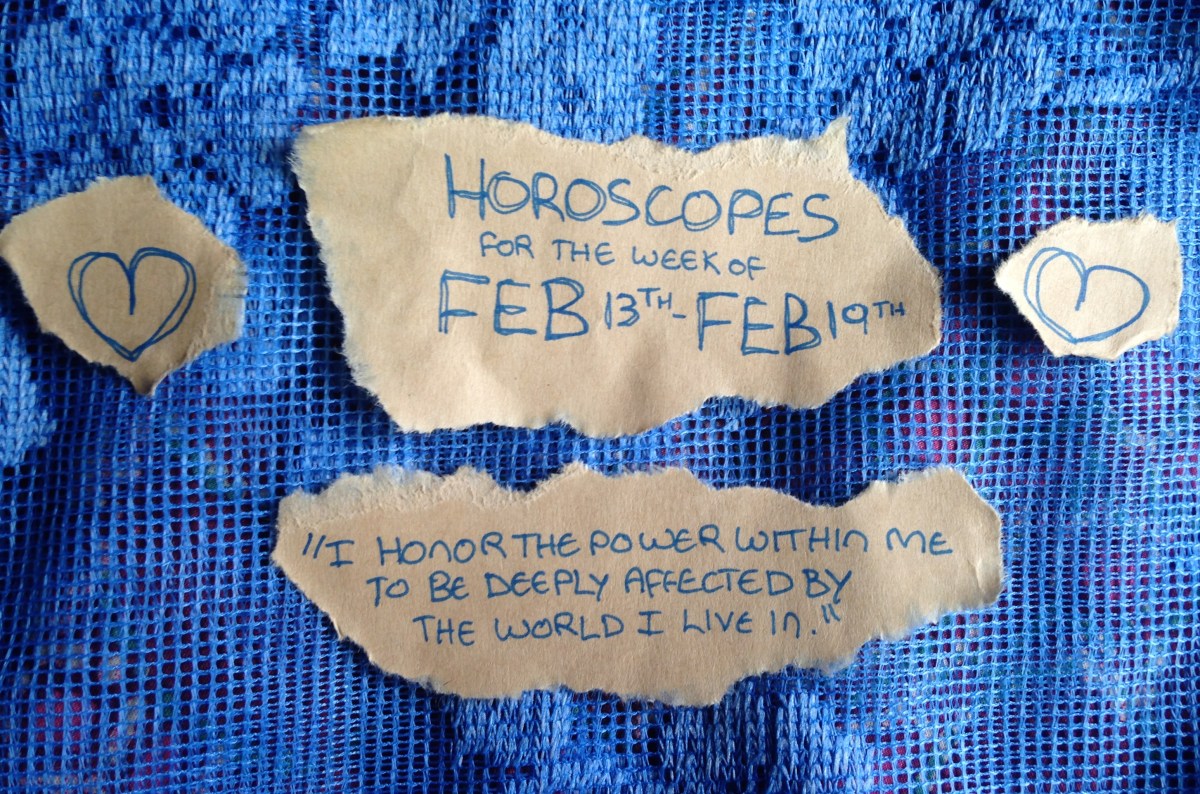 HOROSCOPES
FOR THE WEEK OF
FEB 13TH - FEB 19TH
"I HONOR THE POWER WITHIN ME
TO BE DEEPLY AFFECTED BY
THE WORLD I LIVE IN."